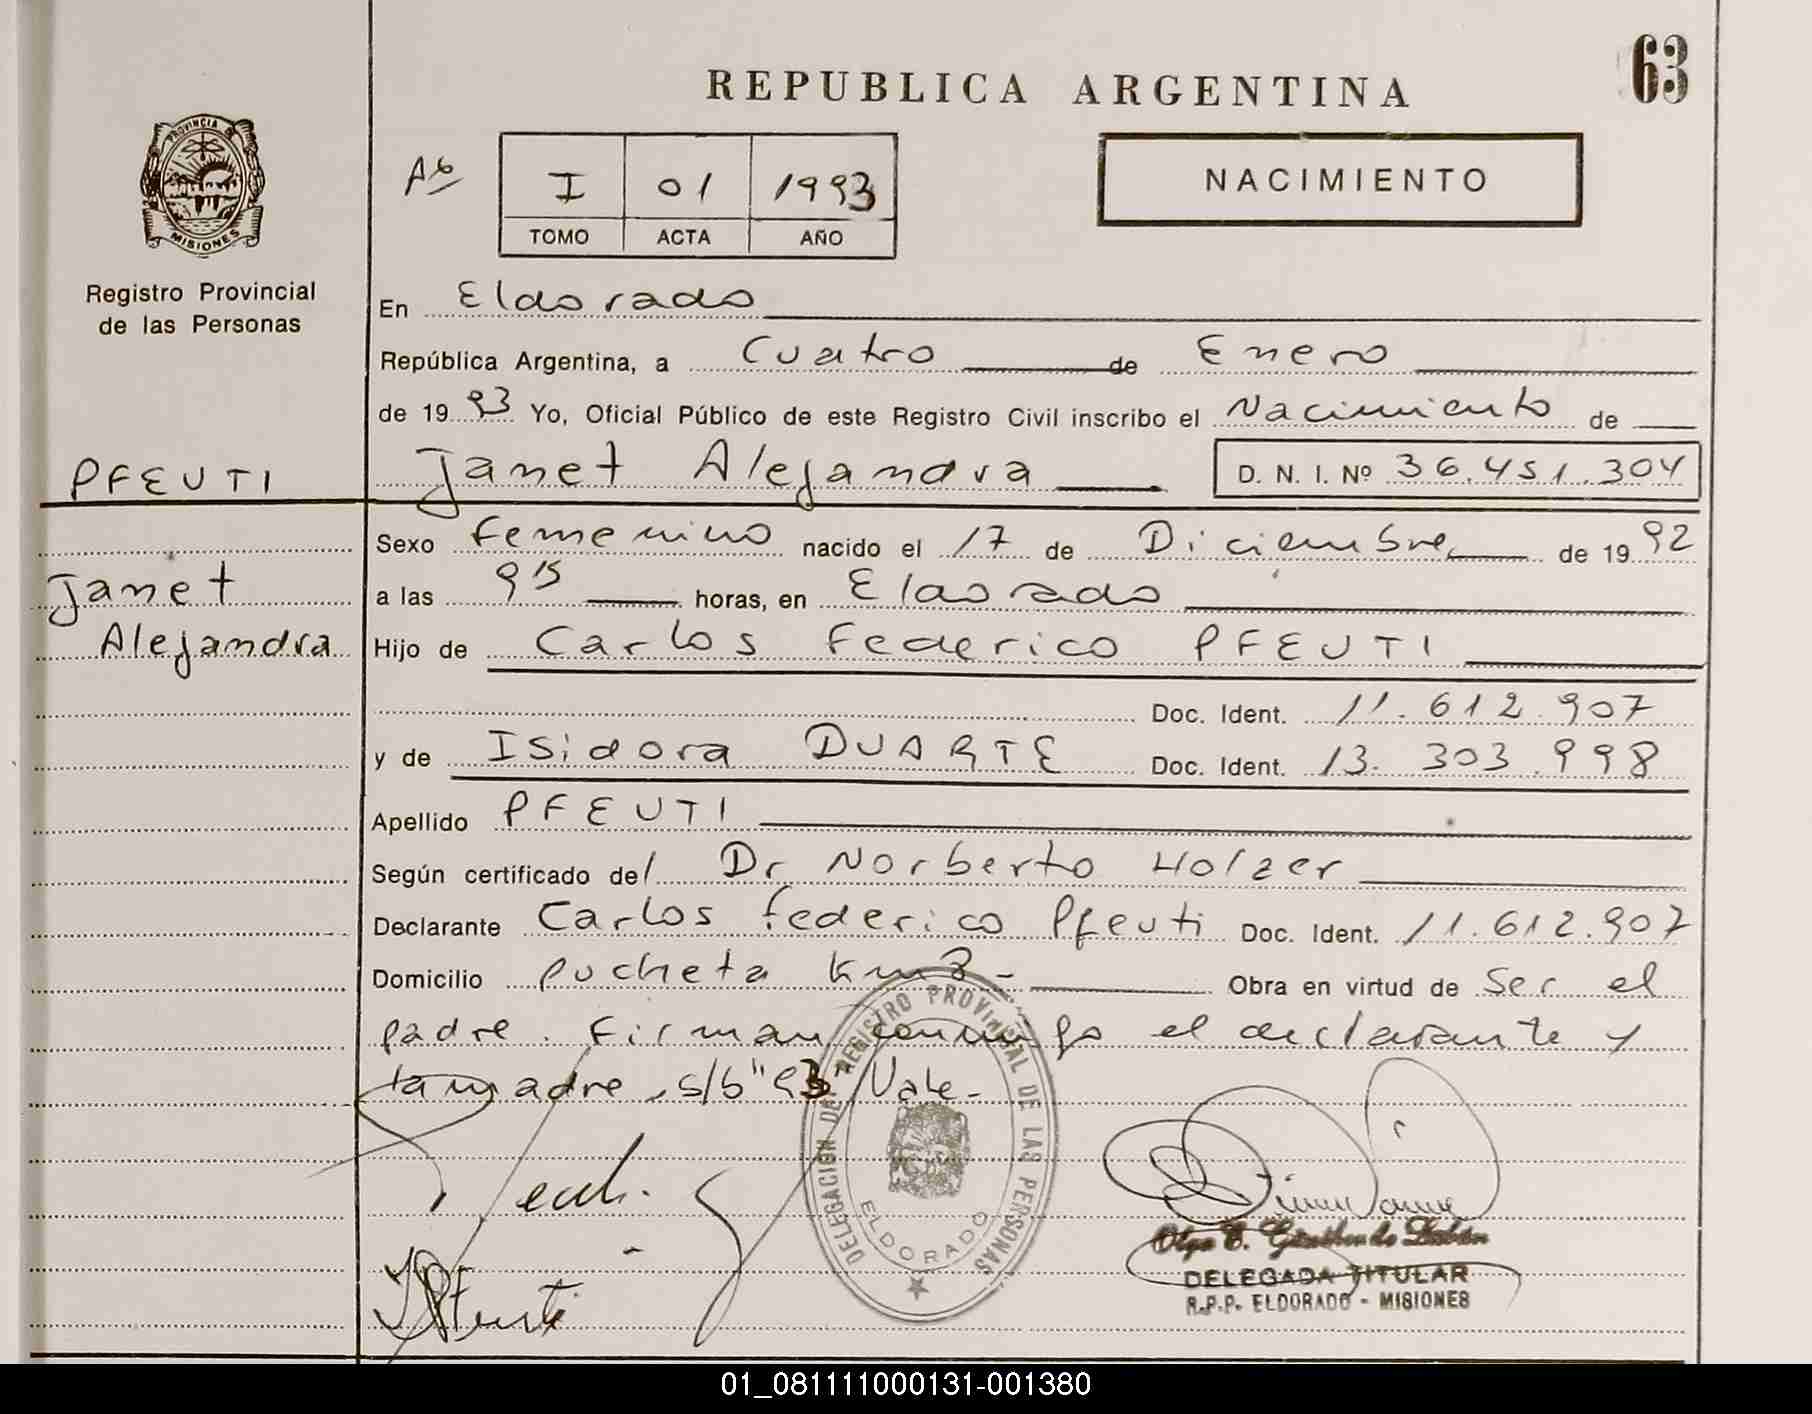 63
REPUBLICA ARGENTINA
PROVINCIA DE
MISIONES
Registro Provincial
de las Personas
I 01 1993
TOMO ACTA AÑO
NACIMIENTO
En Eldorado
República Argentina, a Cuatro de Enero
de 1993 Yo, Oficial Público de este Registro Civil inscribo el Nacimiento de
PFEUTI Janet Alejandra D. N. I. Nº 36.451.304
Sexo Femenino nacido el 17 de Diciembre de 1992
Janet a las 9 15 horas, en Eldorado
Alejandra Hijo de Carlos Federico PFEUTI
Doc. Ident. 11.612.907
y de Isidora DUARTE Doc. Ident. 13.303.998
Apellido PFEUTI
Según certificado del Dr Norberto Holzer
Declarante Carlos Federico Pfeuti Doc. Ident. 11.612.907
Domicilio Pucheta Km Obra en virtud de Ser el
padre. Firman conmigo el declarante y
la madre, s/b "93" Vale-
DELEGACION DEL REGISTRO PROVINCIAL DE LAS PERSONAS
ELDORADO
DELEGADA TITULAR
R.P.P. ELDORADO - MISIONES
01_081111000131-001380